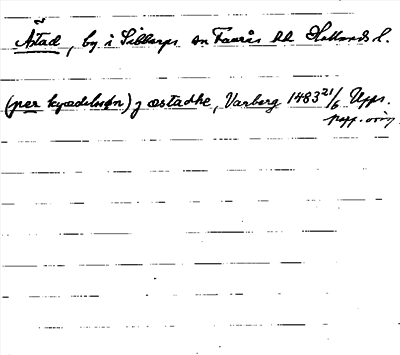 Åstad, by i Sibbarps sn Faurås hd Hallands l.
(per kyædelssøn) j æstadhe, Varberg 1483 21/6 Upps.
papp. orig